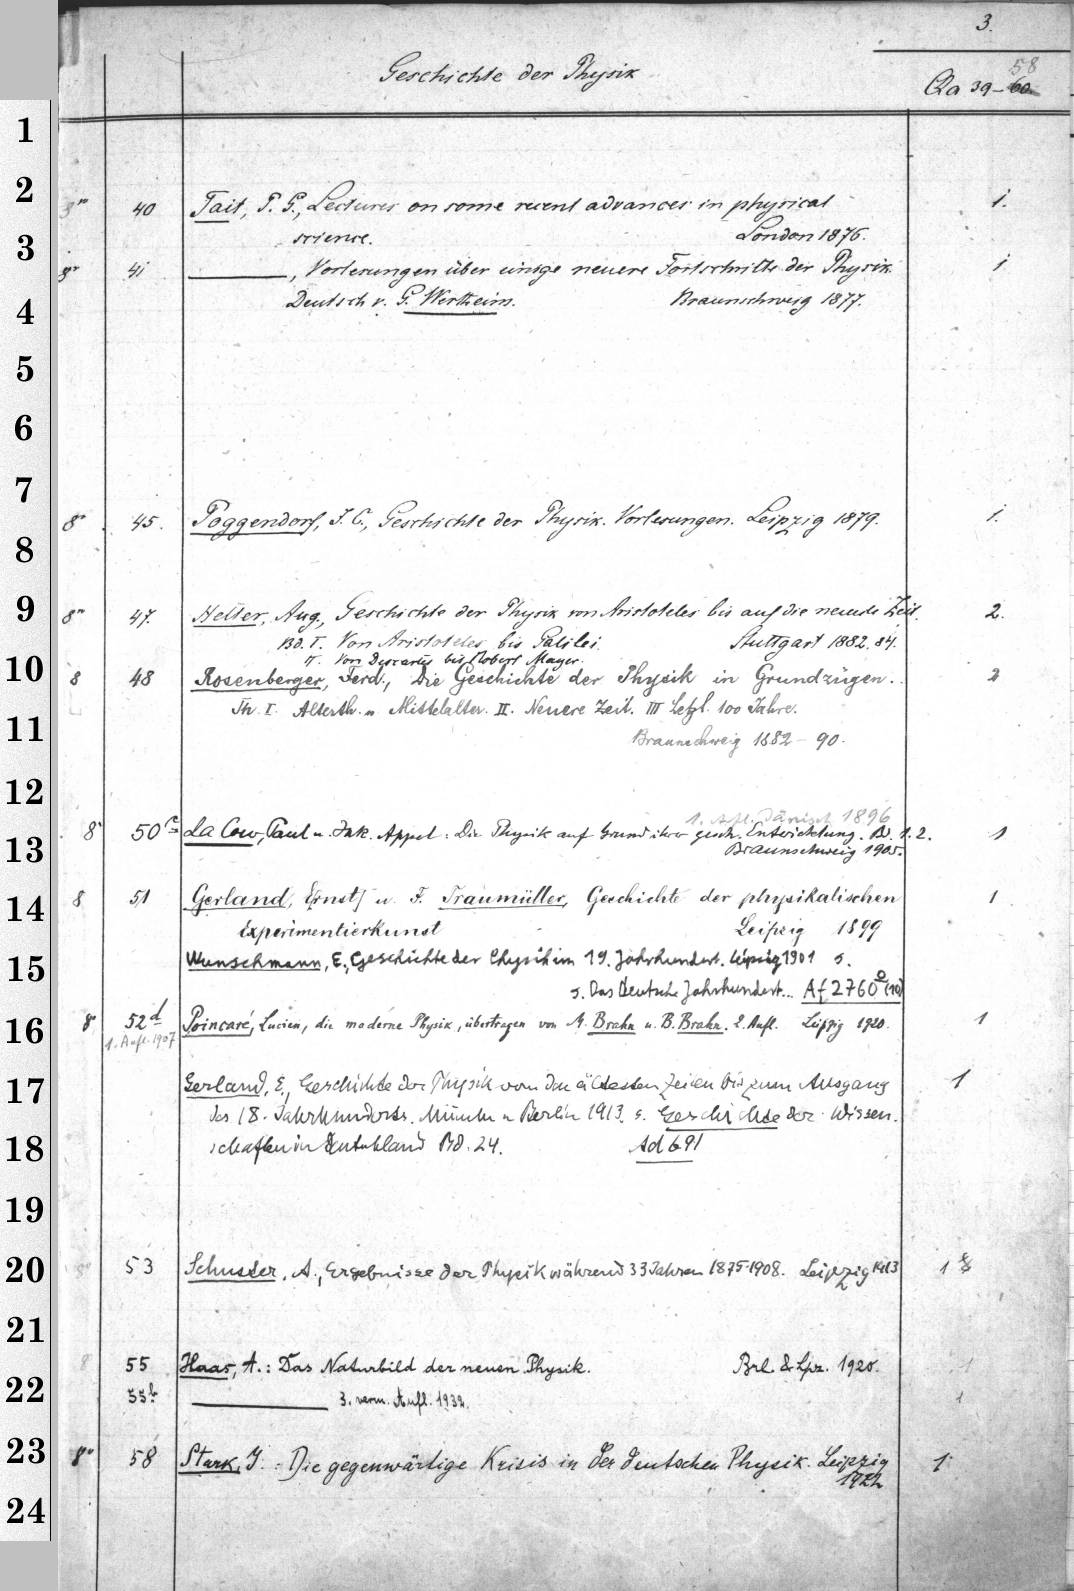 3.
Geschichte der Physik
58
Qa 39-60
1
2
3
4
5
6
7
8
9
10
11
12
13
14
15
16
17
18
19
20
21
22
23
24
40 Tait, P. G., Lectures on some recent advances in physical 1.
science. London 1876.
8° 41 ———, Vorlesungen über einige neuere Fortschritte der Physik. 1
Deutsch v. G. Wertheim. Braunschweig 1877.
8° 45. Poggendorf, J. C., Geschichte der Physik. Vorlesungen. Leipzig 1879. 1.
8° 47. Heller, Aug., Geschichte der Physik von Aristoteles bis auf die neueste Zeit. 2.
Bd. I. Von Aristoteles bis Galilei. Stuttgart 1882. 84.
II. Von Descartes bis Robert Mayer.
8 48 Rosenberger, Ferd., Die Geschichte der Physik in Grundzügen. 2
Th. I. Alterth. u Mittelalter. II. Neuere Zeit. III Letzt. 100 Jahre.
Braunschweig 1882-90.
1. Aufl. Dänisch 1896
8° 50c La Cour, Paul u. Jak. Appel: Die Physik auf Grund ihrer gesch. Entwicklung. Bd. 1. 2. 1
Braunschweig 1905.
8 51 Gerland, Ernst u. F. Traumüller, Geschichte der physikalischen 1
Experimentierkunst Leipzig 1899
Wunschmann, E., Geschichte der Physik im 19. Jahrhundert. Leipzig 1901 s.
s. Das Deutsche Jahrhundert... Af 2760° (10)
8° 52d Poincaré, Lucien, die moderne Physik, übertragen von M. Brahn u. B. Brahn. 2. Aufl. Leipzig 1920. 1
1. Aufl. 1907
Gerland, E., Geschichte der Physik von den ältesten Zeiten bis zum Ausgang 1
des 18. Jahrhunderts. München u Berlin 1913. s. Geschichte der Wissen.
schaften in Deutschland Bd. 24. Ad 691
53 Schuster, A., Ergebnisse der Physik während 33 Jahren 1875-1908. Leipzig 1913 1
8 55 Haas, A.: Das Naturbild der neuen Physik. Brl. & Lpz. 1920. 1
55b ——— 3. verm. Aufl. 1932. 1
8° 58 Stark, J.: Die gegenwärtige Krisis in der deutschen Physik. Leipzig 1
1922